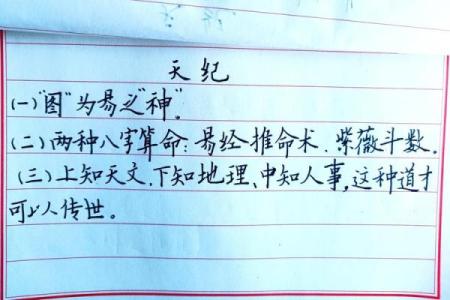 天纪
(一)“图”为易之“神”。
(二)两种八字算命:易经推命术、紫薇斗数。
(三)上知天文、下知地理、中知人事,这种道才
可以人传世。